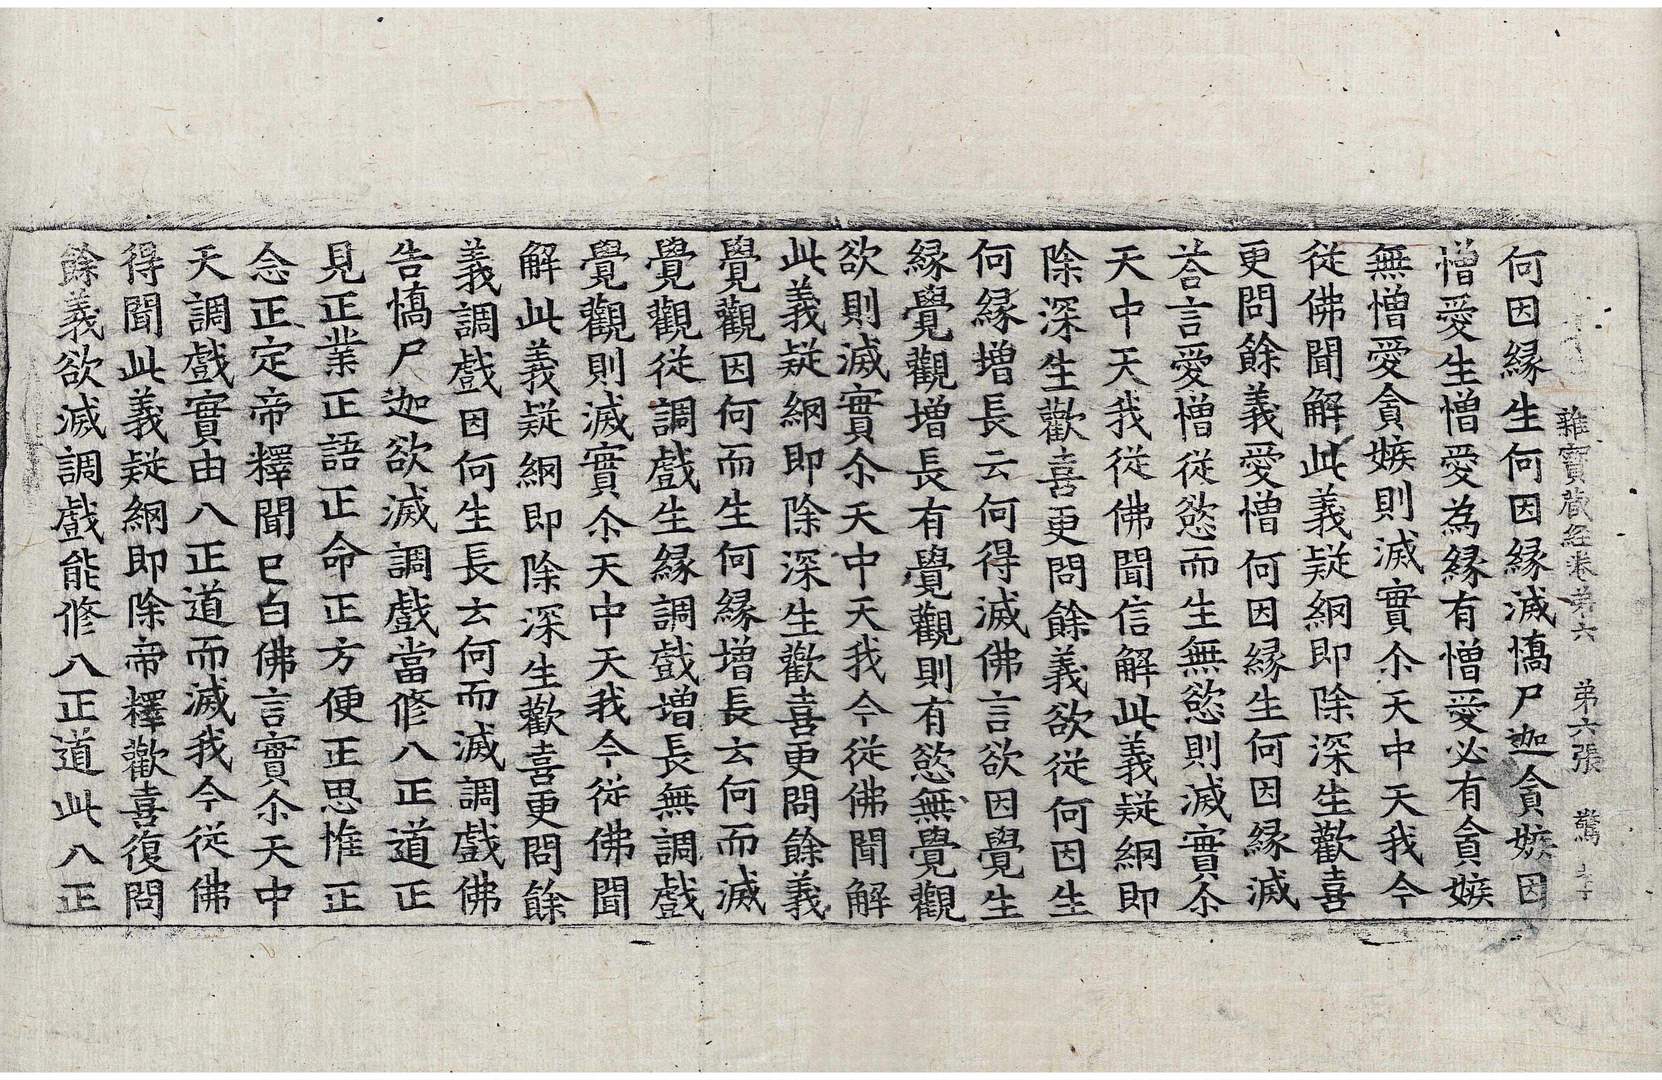 雜寶藏經卷第六 弟六張 驚
何因緣生何因緣滅憍尸迦貪嫉因
憎愛生憎愛為緣有憎愛必有貪嫉
無憎愛貪嫉則滅實尒天中天我今
從佛聞解此義疑網即除深生歡喜
更問餘義愛憎何因緣生何因緣滅
荅言愛憎從慾而生無慾則滅實尒
天中天我從佛聞信解此義疑網即
除深生歡喜更問餘義欲從何因生
何緣增長云何得滅佛言欲因覺生
緣覺觀增長有覺觀則有慾無覺觀
欲則滅實尒天中天我今從佛聞解
此義疑網即除深生歡喜更問餘義
覺觀因何而生何緣增長云何而滅
覺觀從調戲生緣調戲增長無調戲
覺觀則滅實尒天中天我今從佛聞
解此義疑網即除深生歡喜更問餘
義調戲因何生長云何而滅調戲佛
告憍尸迦欲滅調戲當修八正道正
見正業正語正命正方便正思惟正
念正定帝釋聞已白佛言實尒天中
天調戲實由八正道而滅我今從佛
得聞此義疑網即除帝釋歡喜復問
餘義欲滅調戲能修八正道此八正